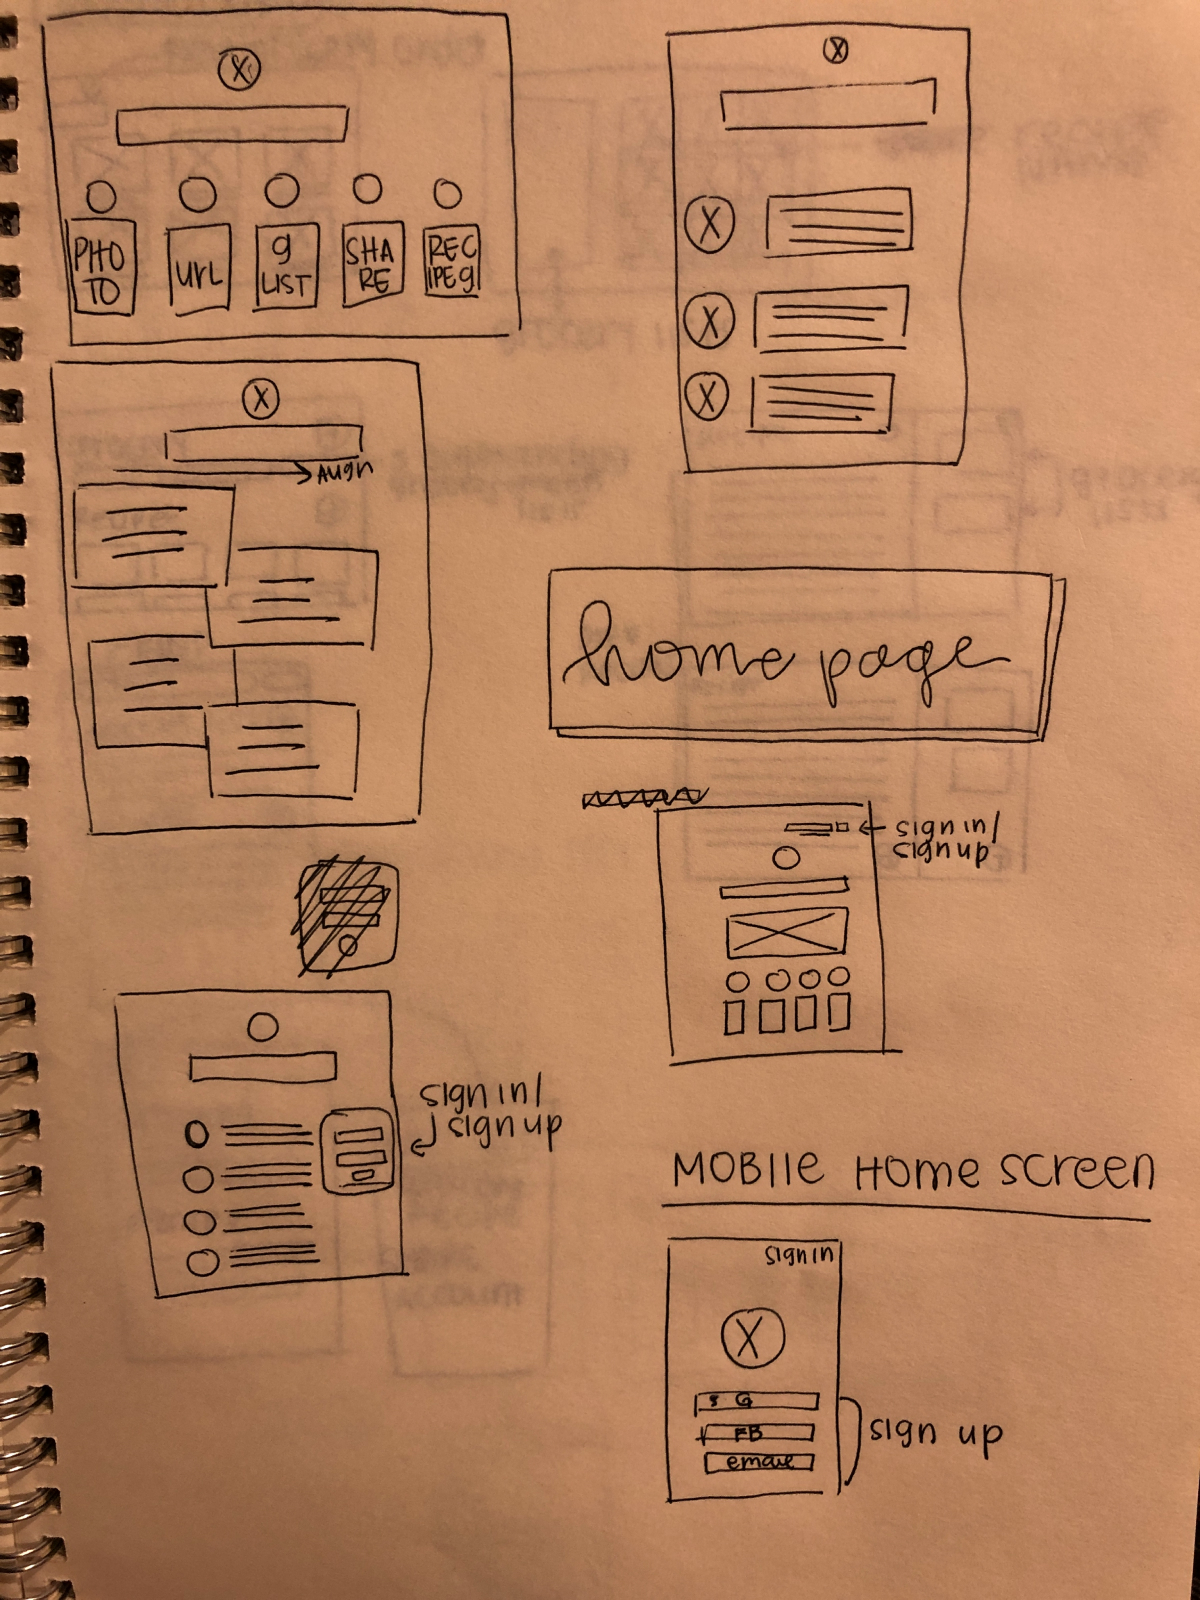 PHO
TO
URL
g
LIST
SHA
RE
REC
IPEg
Align
home page
sign in/
sign up
sign in/
sign up
MOBIle Home screen
sign in
G
FB
email
sign up